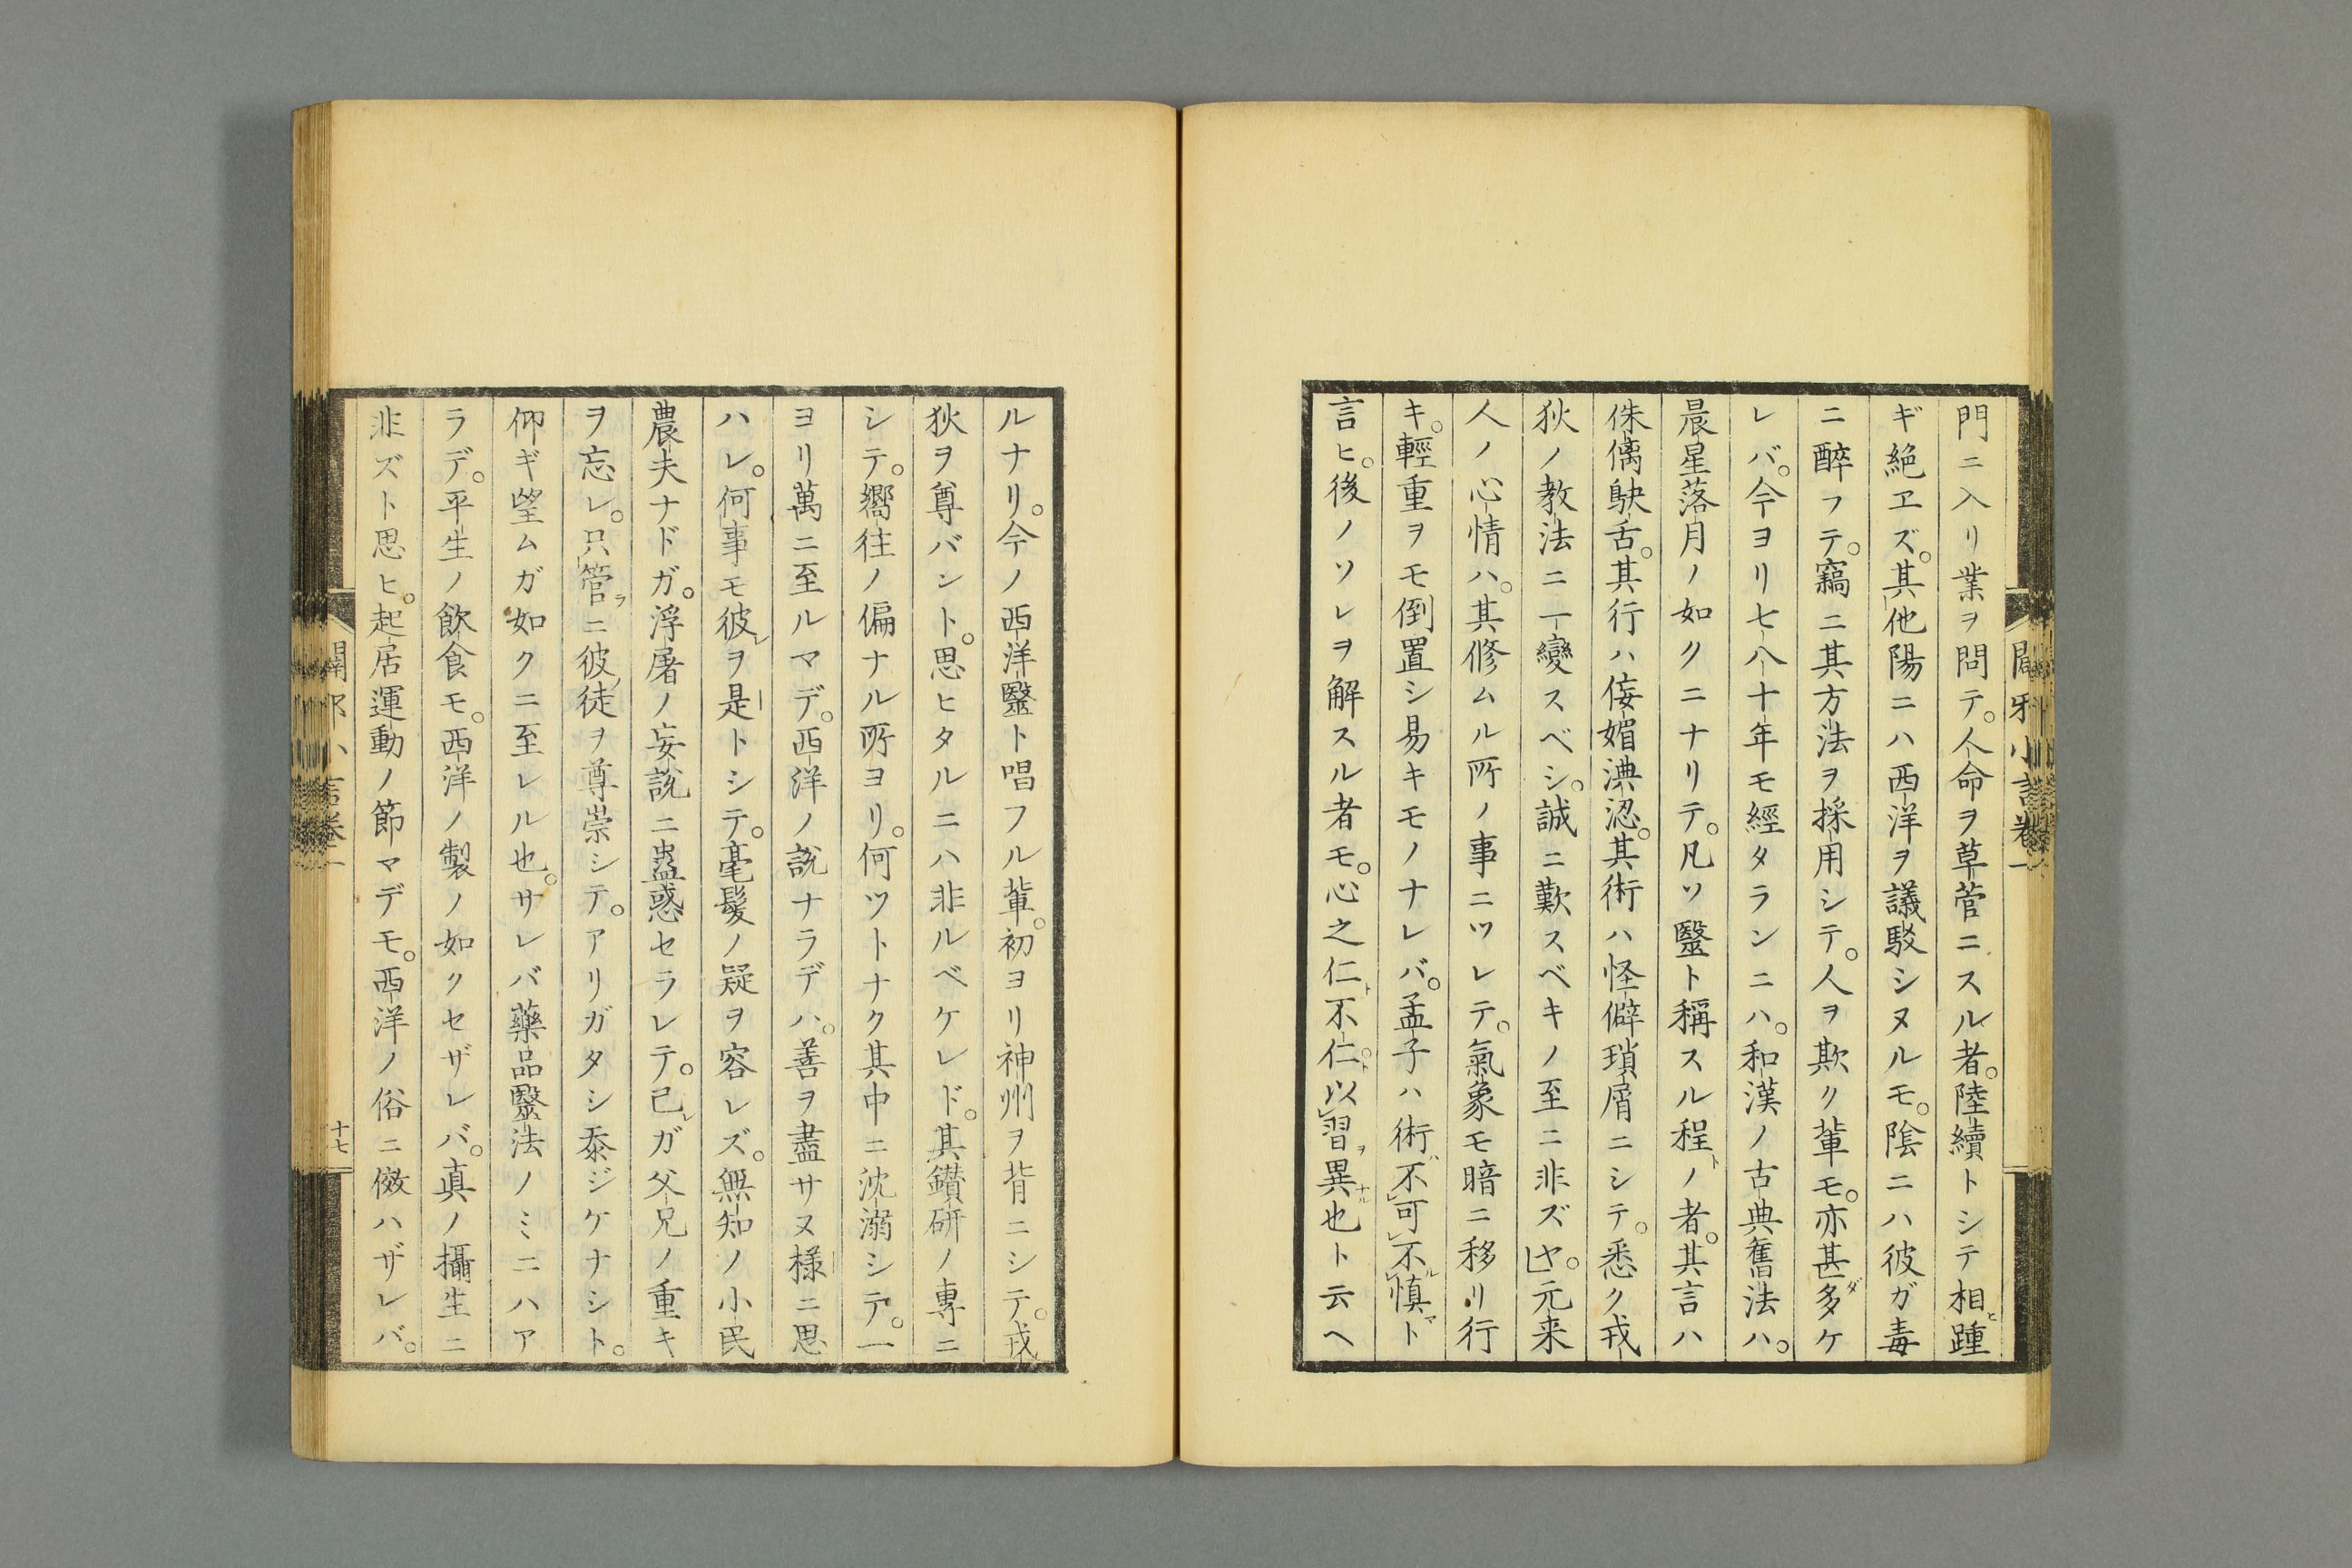 門ニ入リ業ヲ問テ。人命ヲ草菅ニスル者。陸續トシテ相ヒ踵
ギ絶エズ。其他陽ニハ西洋ヲ議駁シヌルモ。陰ニハ彼ガ毒
ニ醉フテ。竊ニ其方法ヲ採用シテ。人ヲ欺ク輩モ。亦甚ダ多ケ
レバ。今ヨリ七八十年モ經タランニハ。和漢ノ古典舊法ハ。
晨星落月ノ如クニナリテ。凡ソ醫ト稱スル程ノ者。其言ハ
侏𠌯鴃舌。其行ハ侫媚淟涊。其術ハ怪僻瑣屑ニシテ。悉ク戎
狄ノ教法ニ一變スベシ。誠ニ歎スベキノ至ニ非ズヤ。元来
人ノ心情ハ。其修ムル所ノ事ニツレテ。氣象モ暗ニ移リ行
キ。輕重ヲモ倒置シ易キモノナレバ。孟子ハ術不可不慎ト
言ヒ。後ノソレヲ解スル者モ。心之仁ト不仁ト。以習ヲ異ナル也ト云ヘ
ルナリ。今ノ西洋醫ト唱フル輩。初ヨリ神州ヲ背ニシテ。戎
狄ヲ尊バント。思ヒタルニハ非ルベケレド。其鑽研ノ專ニ
シテ。嚮往ノ偏ナル所ヨリ。何ツトナク其中ニ沈溺シテ。一
ヨリ萬ニ至ルマデ。西洋ノ說ナラデハ。善ヲ盡サヌ様ニ思
ハレ。何事モ彼レヲ是トシテ。毫髮ノ疑ヲ容レズ。無知ノ小民
農夫ナドガ。浮屠ノ妄說ニ蠱惑セラレテ。己レガ父兄ノ重キ
ヲ忘レ。只管ラニ彼ノ徒ヲ尊崇シテ。アリガタシ忝ジケナシト。
仰ギ望ムガ如クニ至レル也。サレバ藥品醫法ノミニハア
ラデ。平生ノ飲食モ。西洋ノ製ノ如クセザレバ。真ノ攝生ニ
非ズト思ヒ。起居運動ノ節マデモ。西洋ノ俗ニ倣ハザレバ。
十七